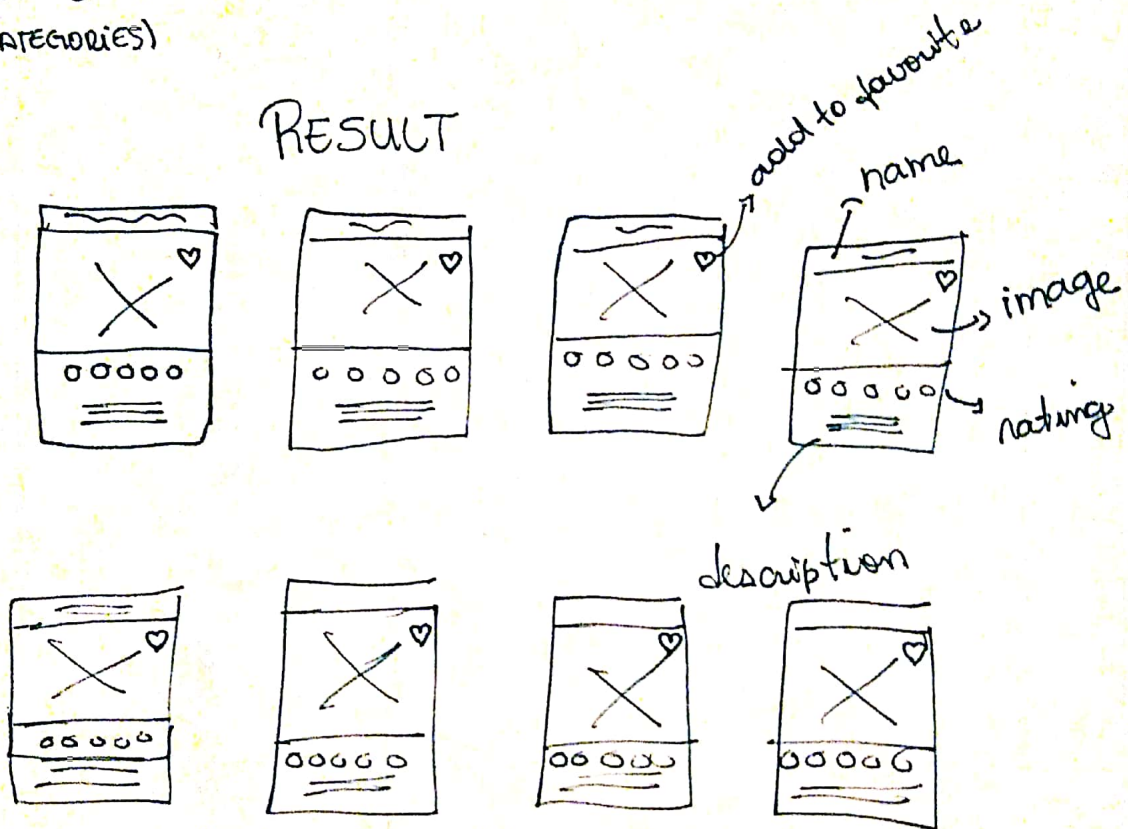 ATEGORIES)
RESULT
add to favorite
name
image
rating
description